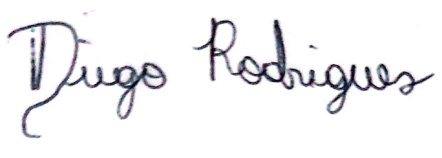 Diugo Rodrigues